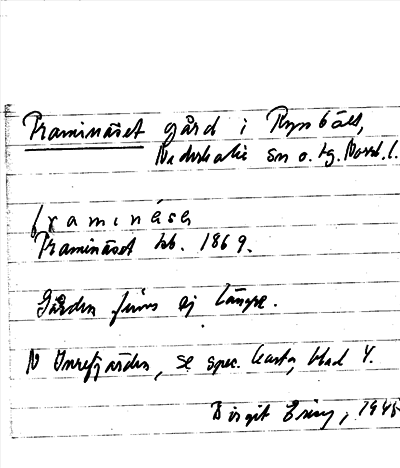 Framinäset gård i Ryssbält,
Nederkalix sn o. tg. Norrb. l.
framinäsə
Framinäset hb. 1869.
Gården finns ej längre.
N Innrefjärden, se spec. karta, blad 4.
Birgit 1945